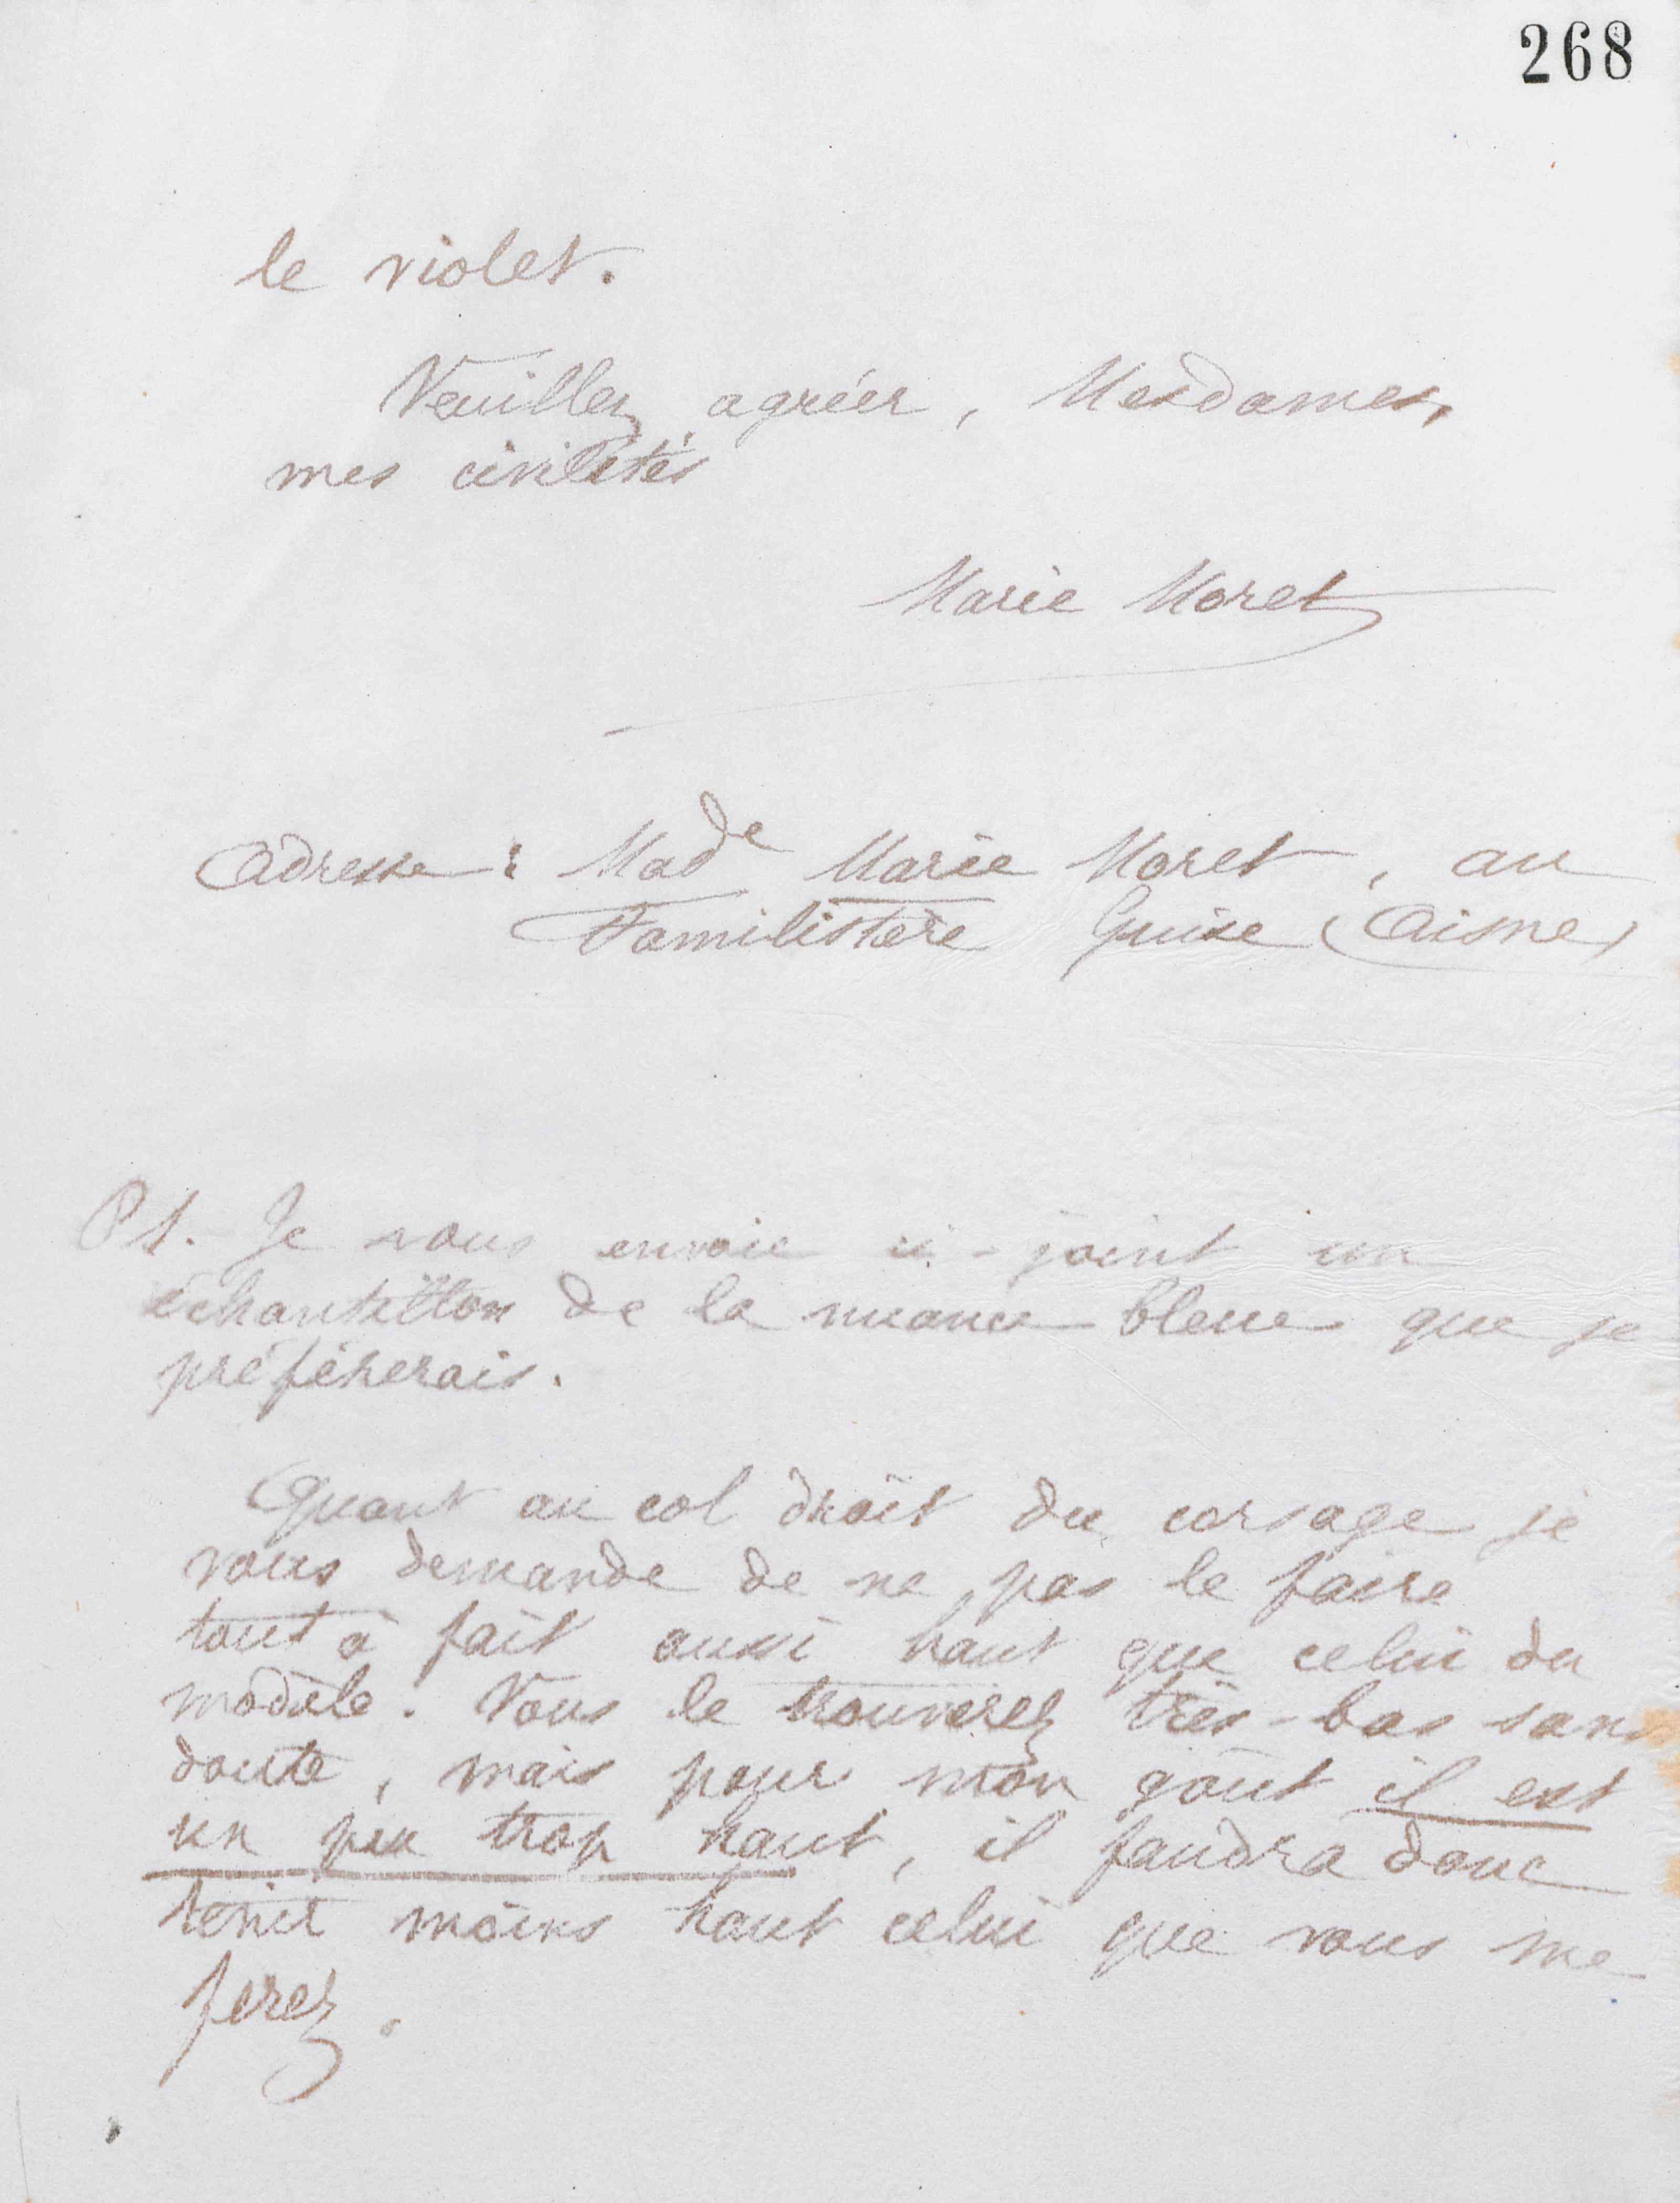 268
le violet.
Veuillez agréer, Mesdames,
mes civilités
Marie Moret
Adresse : Mad^de Marie Moret, au
Familistère Guise (Aisne)
PS. Je vous envoie ci-joint un
échantillon de la nuance bleue que je
préférerais.
Quant au col droit du corsage je
vous demande de ne pas le faire
tout à fait aussi haut que celui du
modèle. Vous le trouverez très-bas sans
doute, mais pour mon goût il est
un peu trop haut, il faudra donc
tenir moins haut celui que vous me
ferez.